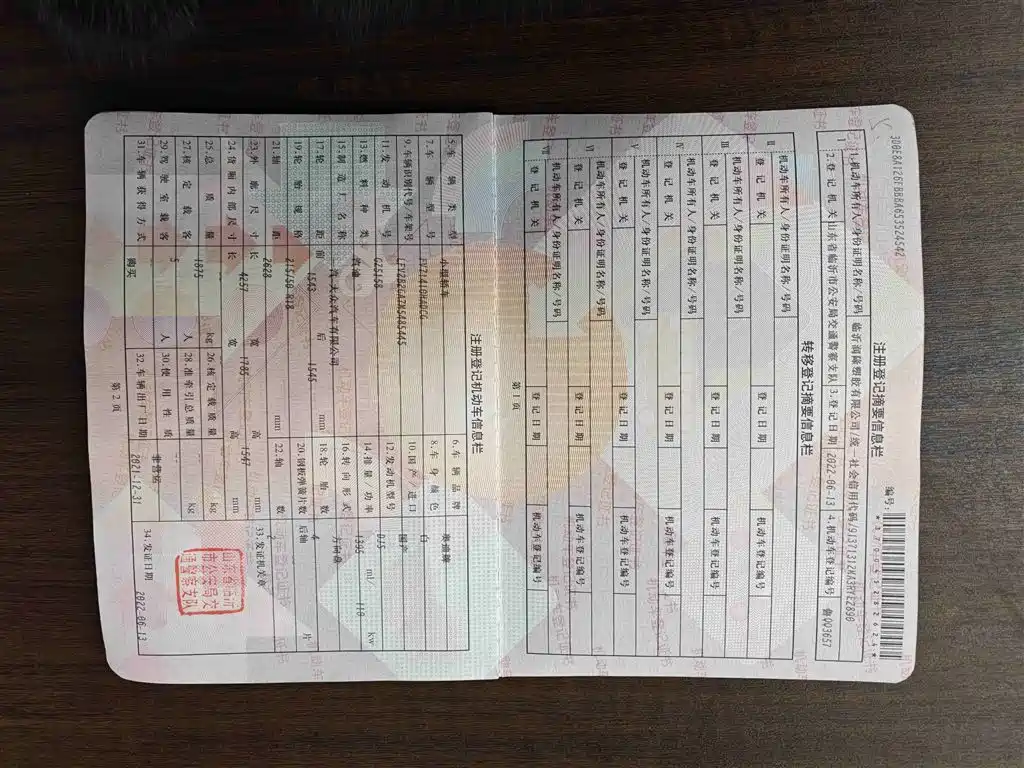 注册登记摘要信息栏
编号:
1.机动车所有人/身份证明名称/号码 临沂润隆塑胶有限公司/统一社会信用代码/91371312MA3RYE2890
2.登记机关 山东省临沂市公安局交通警察支队 3.登记日期 2022-06-13 4.机动车登记编号 鲁QQ3657
转移登记摘要信息栏
II 机动车所有人/身份证明名称/号码
登记机关 登记日期 机动车登记编号
III 机动车所有人/身份证明名称/号码
登记机关 登记日期 机动车登记编号
IV 机动车所有人/身份证明名称/号码
登记机关 登记日期 机动车登记编号
V 机动车所有人/身份证明名称/号码
登记机关 登记日期 机动车登记编号
VI 机动车所有人/身份证明名称/号码
登记机关 登记日期 机动车登记编号
VII 机动车所有人/身份证明名称/号码
登记机关 登记日期 机动车登记编号
第1页
注册登记机动车信息栏
5.车辆类型 小型轿车 6.车辆品牌
7.车辆型号 8.车身颜色 白
9.车辆识别代号/车架号 10.国产/进口 国产
11.发动机号 12.发动机型号 DJS
13.燃料种类 汽油 14.排量/功率 1395 ml/ 110 kw
15.制造厂名称 一汽-大众汽车有限公司 16.转向形式 方向盘
17.轮距 前 1543 后 1545 mm 18.轮胎数 4
19.轮胎规格 215/50 R18 20.钢板弹簧片数 后轴 片
21.轴距 2628 mm 22.轴数 2
23.外廓尺寸 长 4257 宽 1785 高 1547 mm 33.发证机关章
24.货厢内部尺寸 长 宽 高 mm
25.总质量 1875 kg 26.核定载质量 kg
27.核定载客 5 人 28.准牵引总质量 kg
29.驾驶室载客 人 30.使用性质 非营运
31.车辆获得方式 购买 32.车辆出厂日期 2021-12-31 34.发证日期 2022-06-13
第2页